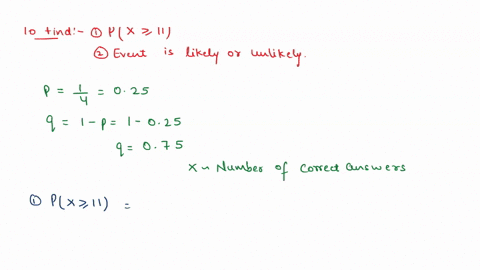 To find:- ① P(X ≥ 11)
② Event is likely or unlikely.
P = 1/4 = 0.25
q = 1 - P = 1 - 0.25
q = 0.75
X ~ Number of correct answers
① P(X ≥ 11) =